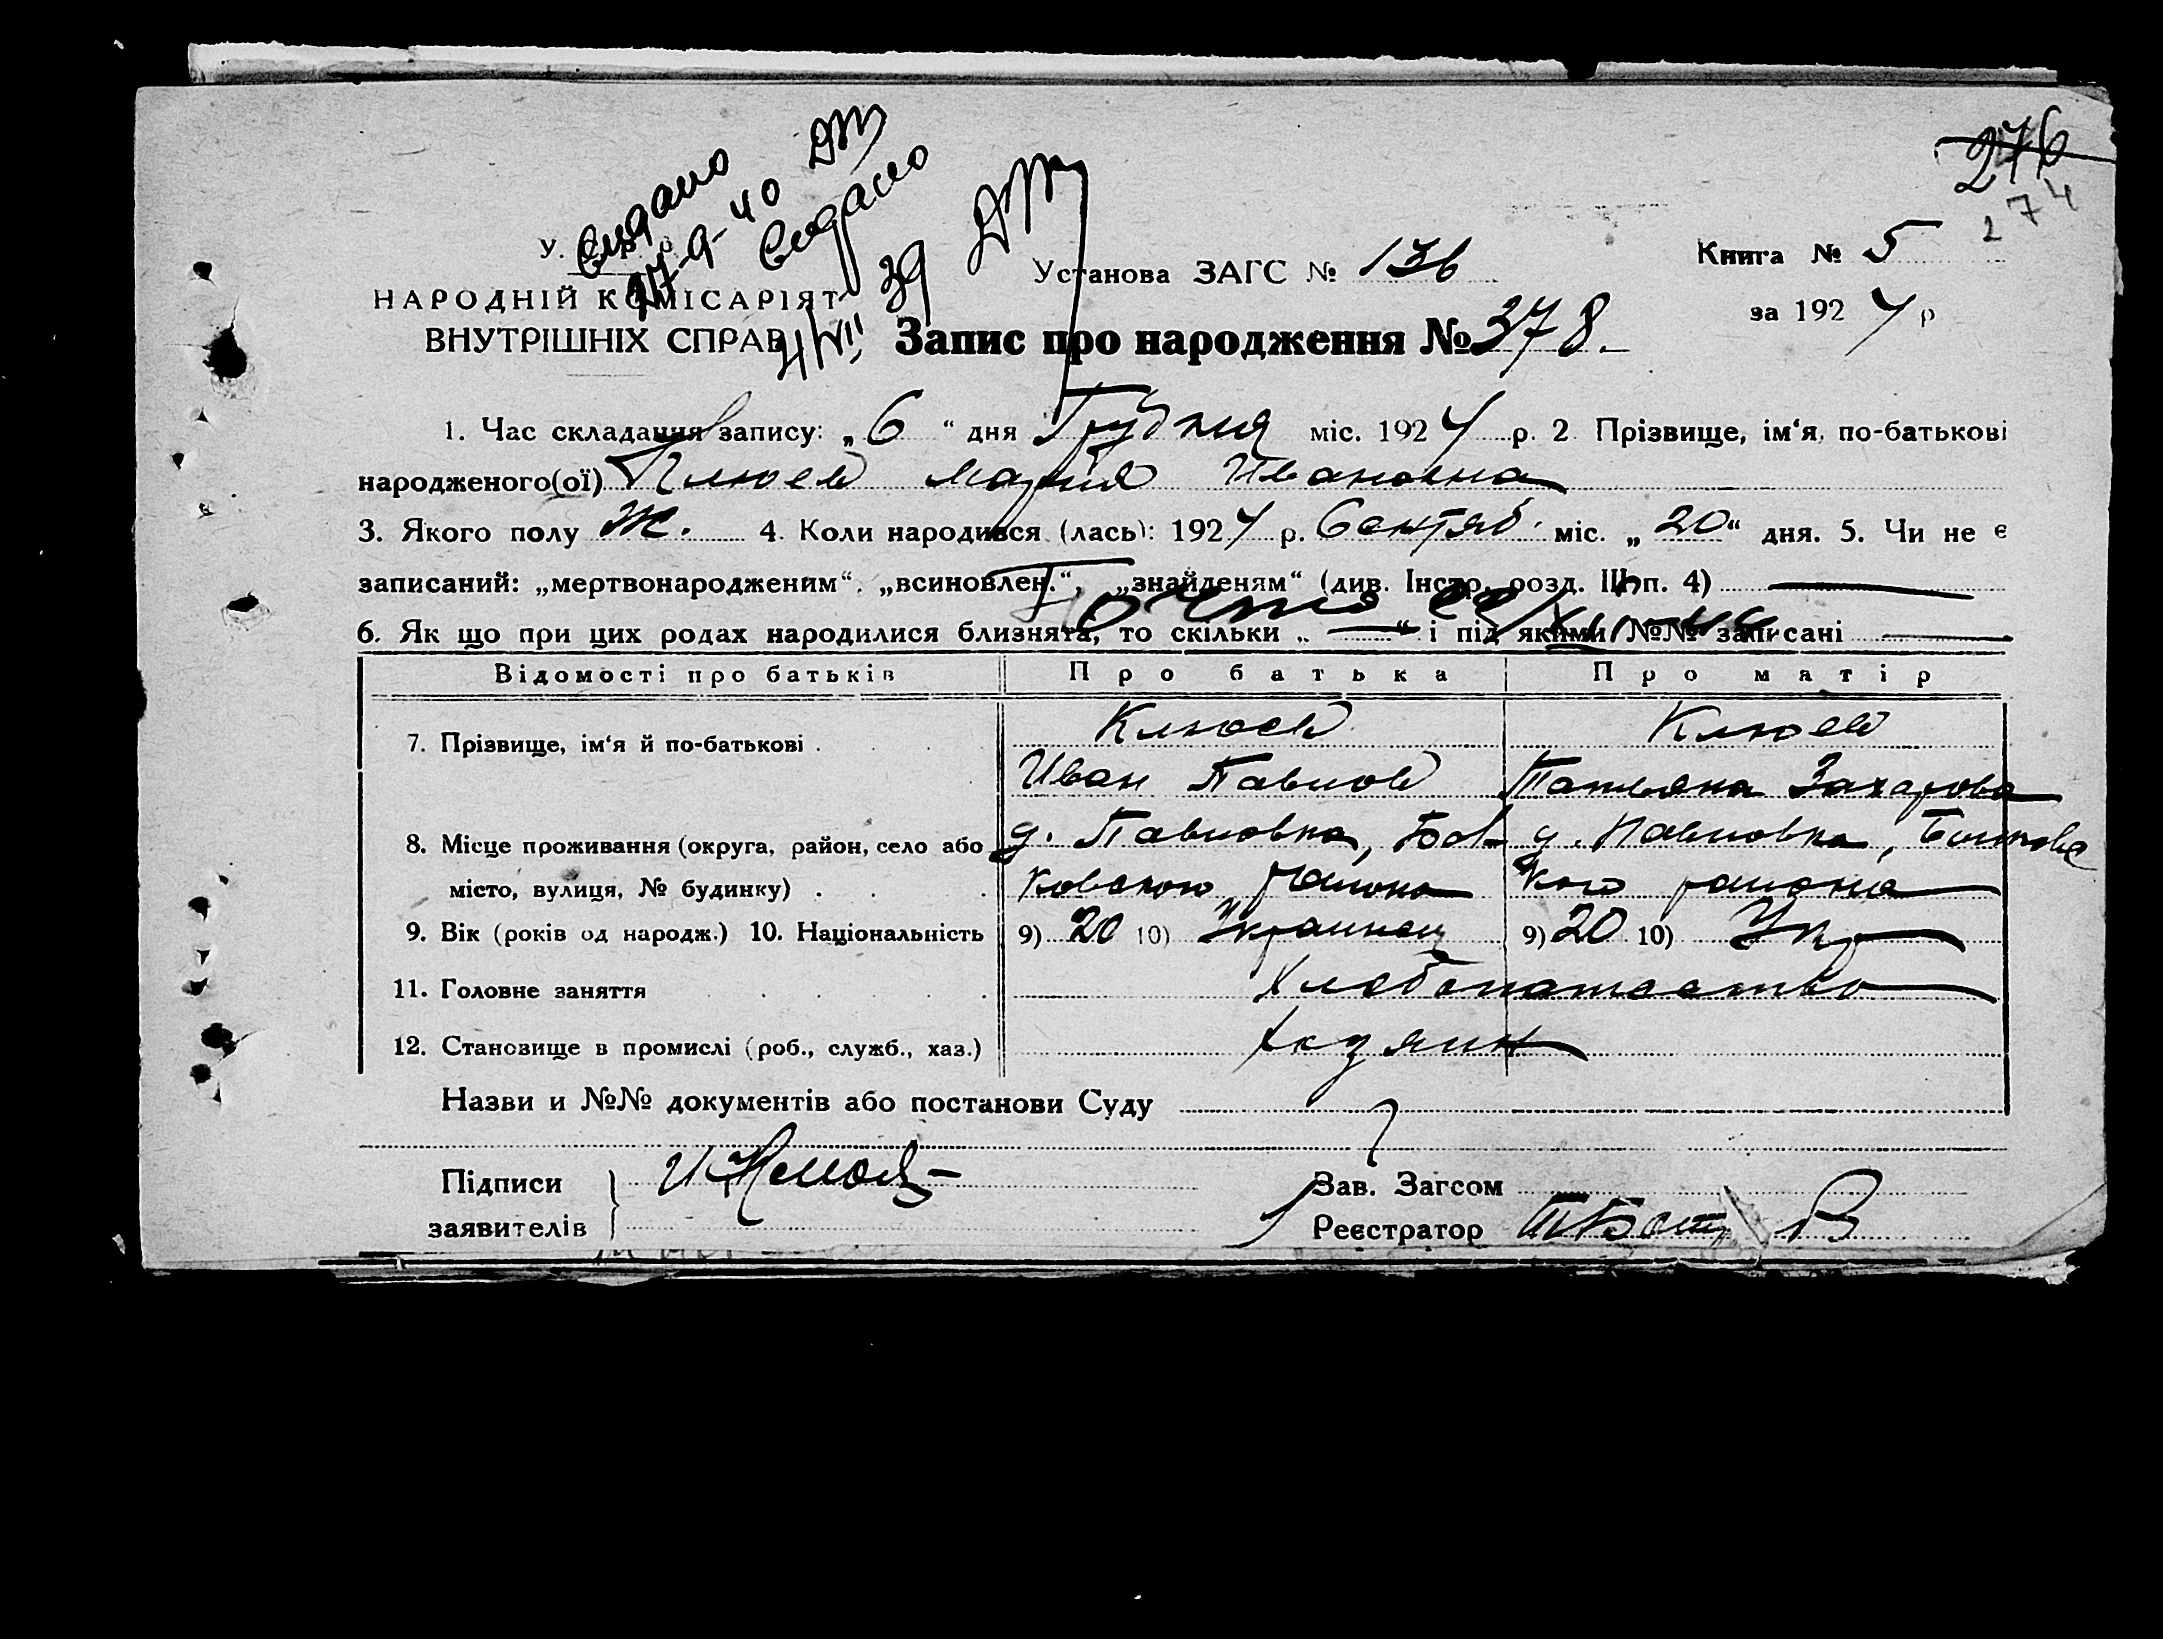 276
274
Видано
27-9-40
Видано
4/VII 39
У. С. Р. Р.
Установа ЗАГС № 136
Книга № 5
НАРОДНІЙ КОМІСАРІЯТ
за 1924 р
ВНУТРІШНІХ СПРАВ
Запис про народження № 378.
1. Час складання запису: „6“ дня Грудня міс. 1924 р. 2 Прізвище, ім‘я, по-батькові
народженого(ої) Клюев Мария Ивановна
3. Якого полу Ж. 4. Коли народився (лась): 1924 р. Сентяб. міс. „20“ дня. 5. Чи не є
записаний: „мертвонародженим“, „всиновлен.“, „знайденям“ (див. Інстр. розд. ІІІ п. 4) —
6. Як що при цих родах народилися близнята, то скільки „—“ і під якими №№ записані —
Відомості про батьків Про батька Про матір
7. Прізвище, ім‘я й по-батькові . Клюев Клюев
Иван Павлов Татьяна Захарова
8. Місце проживання (округа, район, село або д. Павловка, д. Павловка,
місто, вулиця, № будинку) . района кого района
9. Вік (років од народж.) 10. Національність 9) 20 10) Украинец 9) 20 10) Укр
11. Головне заняття Хлебопашество
12. Становище в промислі (роб., служб., хаз.) Хозяин
Назви и №№ документів або постанови Суду
Підписи Зав. Загсом
заявителів Реєстратор